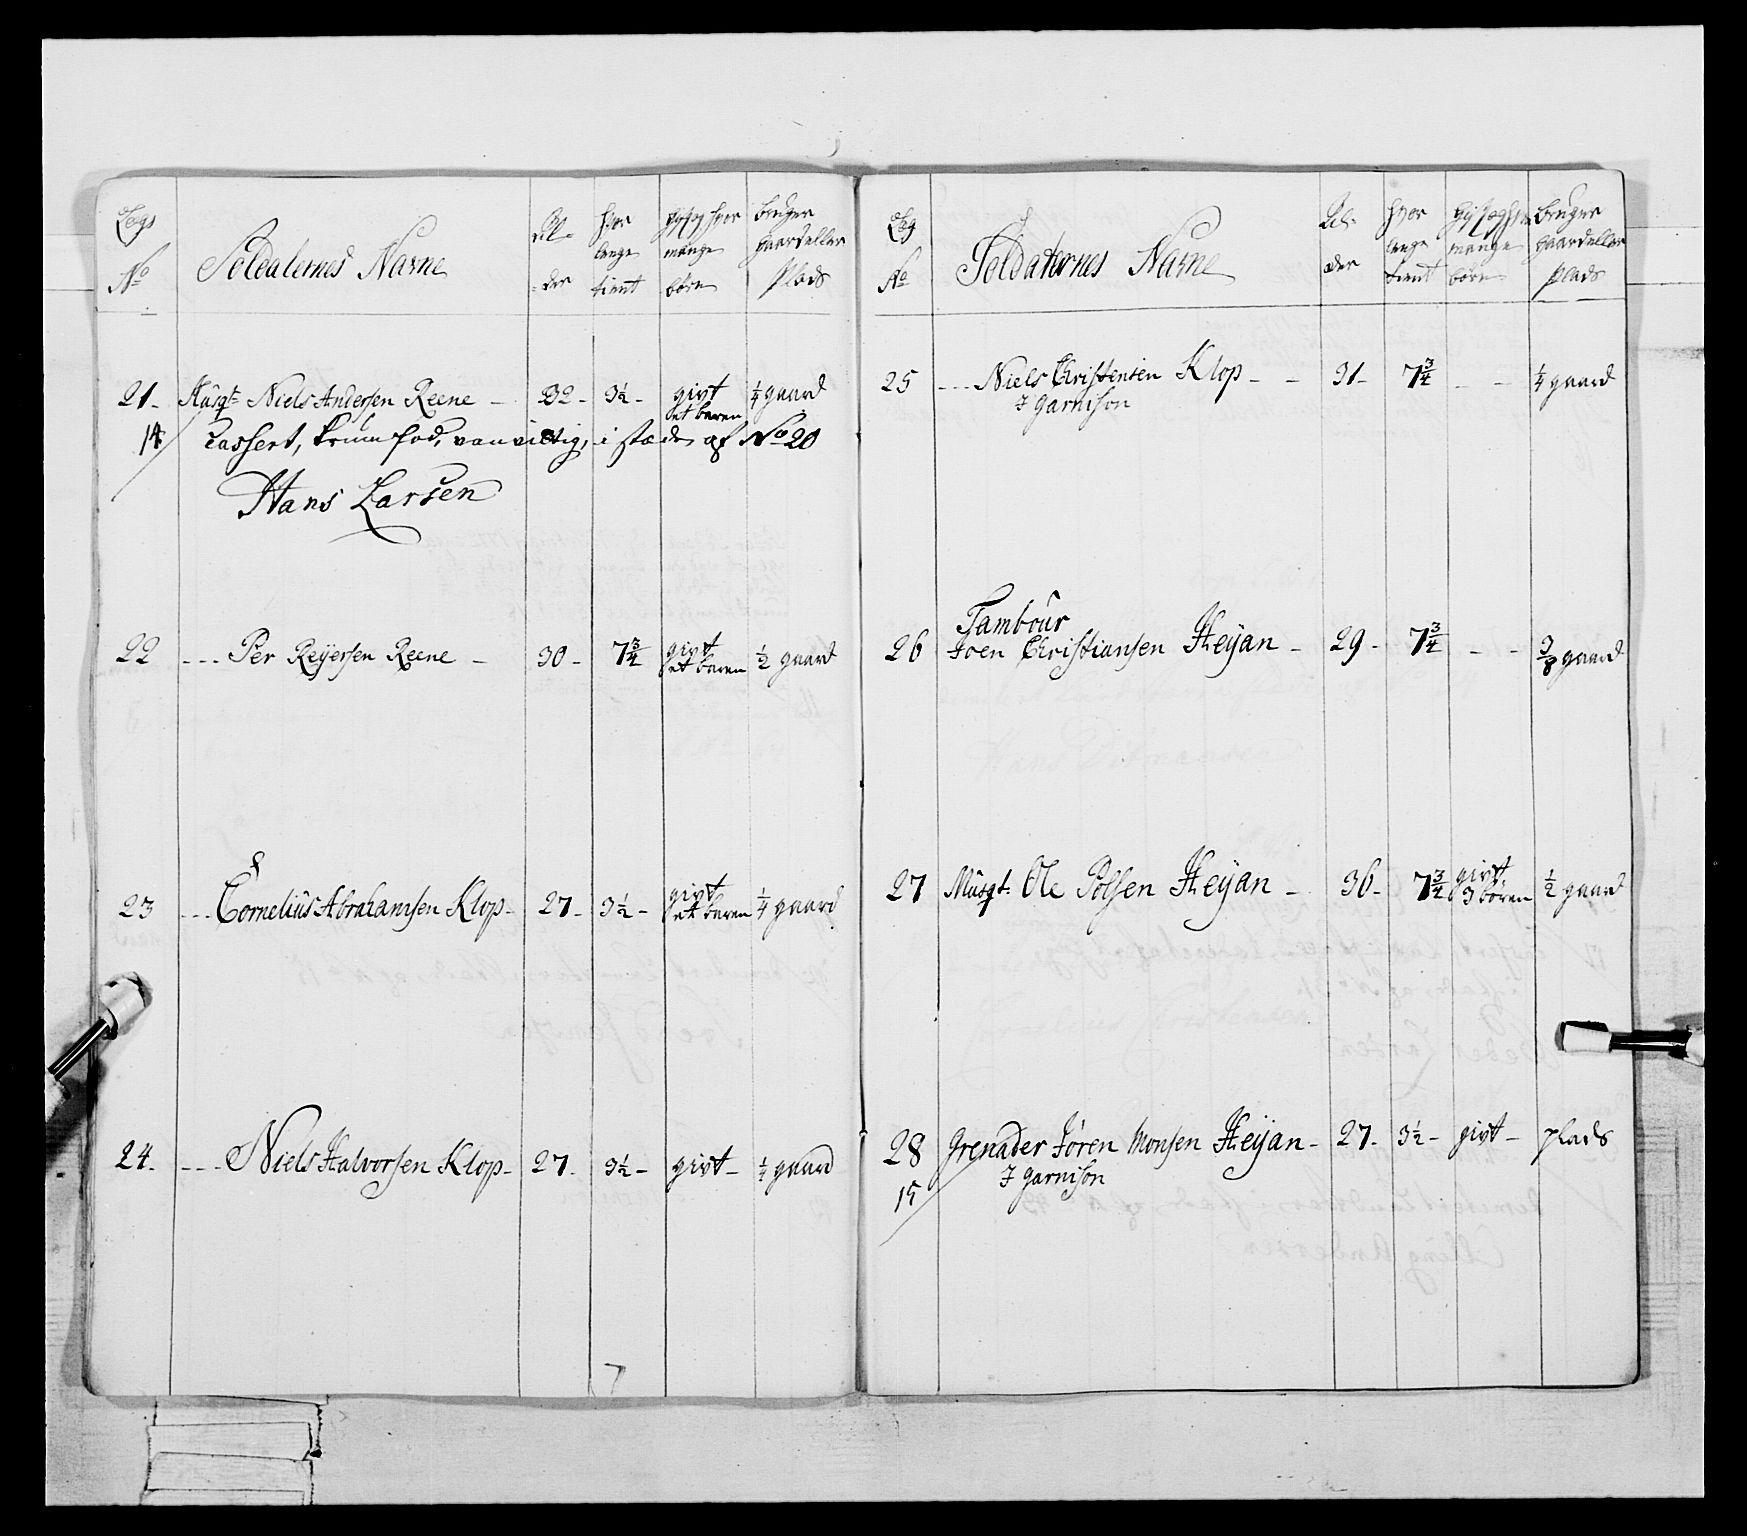 Legs No Soldaternes Nafne Al-der hvor lenge tient gift og hvor mange børn bruger gaard eller Plads
21- Musqt Niels Andersen Reene - 32- 3½- givt et baren ¼ gaard
14 Cassert, krumfod, vanvittig, i stæden af No 20
Hans Larsen
22 --- Per Reÿersen Reene - 30- 7¾ givt et baren ½ gaard
23 --- Cornelius Abrahamsen Klop- 27- 3½- givt et baren ¼ gaard
24- --- Niels Halvorsen Klop- 27- 3½- givt- ¼ gaard
7
Leg No Soldaternes Nafne Al-der hvor lenge tient gift og hvor mange børn bruger gaard eller Plads
25 --- Niels Christensen Klop - - 31- 7¾ - - ¼ gaard
I garnison
Tambour
26 Joen Christiansen Heÿan - 29- 7¾ - - 3/8 gaard
27 Musqt Ole Polsen Heÿan - 36- 7¾ givt 3 børen ½ gaard
28 Grenader Jören Monsen Heÿan- 27- 3½- givt- plads
15 I garnison